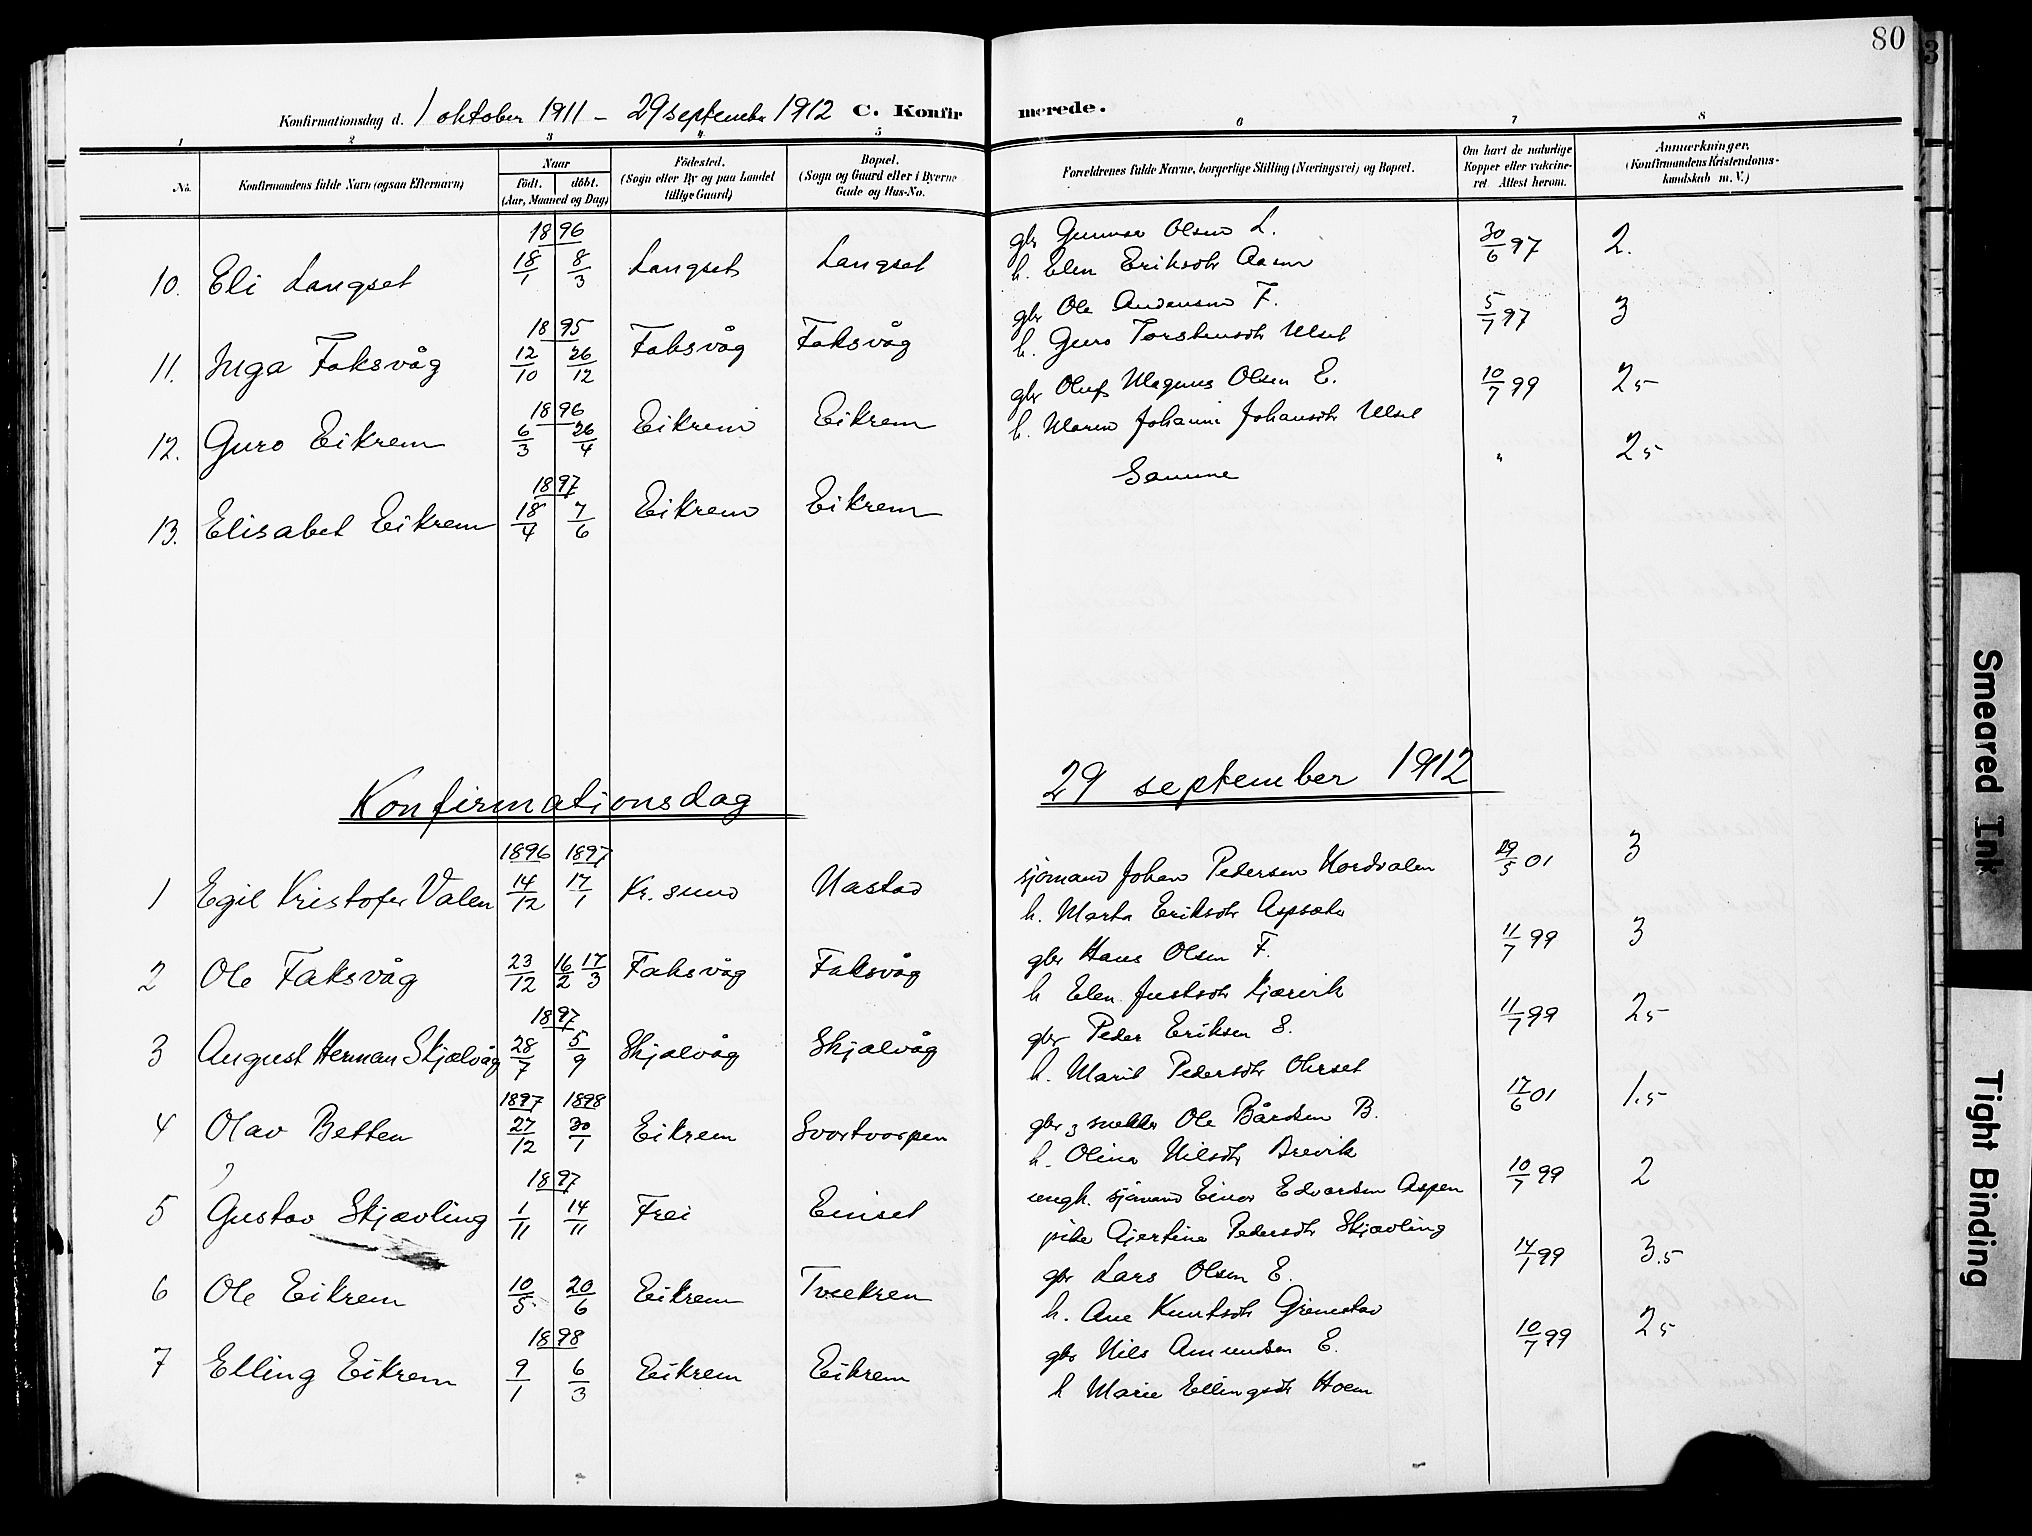 80
Konfirmationsdag d. 1 oktober 1911 – 29 september 1912 C. Konfirmerede.
1 2 3 4 5 6 7 8
No.
Konfirmandens fulde Navn (ogsaa Efternavn)
Naar
födt. döbt.
(Aar, Maaned og Dag)
Födested.
(Sogn eller By og paa Landet
tillige Gaard)
Bopæl.
(Sogn og Gaard eller i Byerne
Gade og Hus-No.
Forældrenes fulde Navne, borgerlige Stilling (Næringsvei) og Bopæl.
Om havt de naturlige
Kopper eller vakcine-
ret Attest herom.
Anmærkninger.
(Konfirmandens Kristendoms-
kundskab m. V.)
1896
10. Eli Langset 18/1 8/3 Langset Langset gbr Gunnar Olsen L. 30/6 97 2.
h. Elen Eriksdtr Aasen
1895
11. Inga Faksvåg 12/10 26/12 Faksvåg Faksvåg gbr Ole Andersen F. 5/7 97 3
h. Guro Torstensdtr Ulset
1896
12. Guro Eikrem 6/3 26/4 Eikrem Eikrem gbr Oluf Magnus Olsen E. 10/7 99 25
h. Maren Johanne Johansdtr Ulset
1897
13. Elisabet Eikrem 18/4 7/6 Eikrem Eikrem Samme " 25
Konfirmationsdag 29 september 1912
1896 1897
1 Egil Kristofer Valen 14/12 17/1 Kr.sund Nastad sjömand Johan Pedersen Nordvalen 29/5 01 3
h. Marta Eriksdtr Aspsæter
2 Ole Faksvåg 23/12 16/2 17/3 Faksvåg Faksvåg gbr Hans Olsen F. 11/7 99 3
h Elen Justsdtr Kjærvik
1897
3 August Herman Skjælvåg 28/7 5/9 Skjalvåg Skjalvåg gbr Peder Eriksen S. 11/7 99 25
h. Marit Pedersdtr Ohrset
1897 1898
4 Olav Betten 27/12 30/1 Eikrem Svartvarpen gbr & snekker Ole Bårdsen B. 17/6 01 1.5
h. Olina Nilsdtr Brevik
1897
5 Gustav Skjævling 1/11 14/11 Frei Einset ungk. sjömand Einar Edvardsen Aspen 10/7 99 2
pike Gjertine Pedersdtr Skjævling
6 Ole Eikrem 10/5 20/6 Eikrem Tveekren gbr Lars Olsen E. 14/1 99 3.5
h. Ane Knutsdtr Gjemstav
1898
7 Elling Eikrem 9/1 6/3 Eikrem Eikrem gbr Nils Amundsen E. 10/7 99 25
h Marie Ellingsdtr Hoem
Smeared Ink
Tight Binding